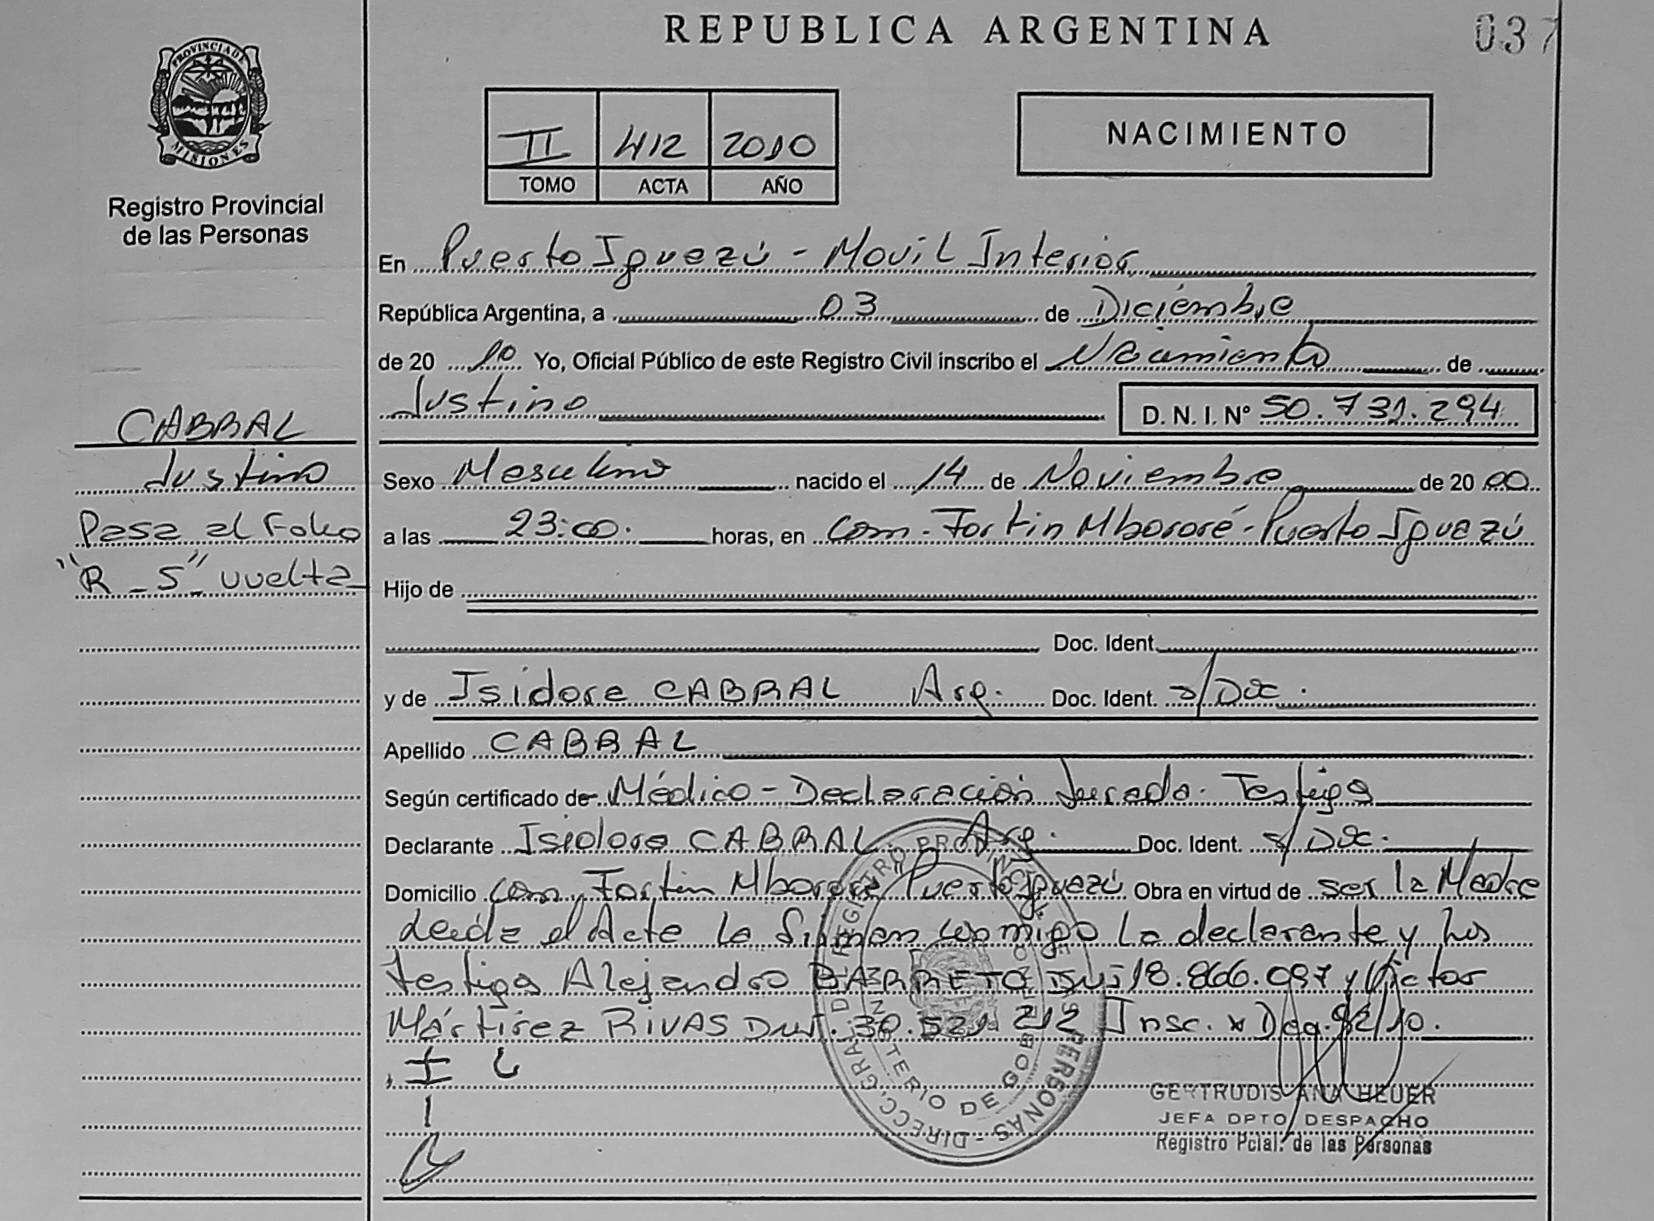 REPUBLICA ARGENTINA
037
PROVINCIA DE MISIONES
Registro Provincial
de las Personas
II 412 2010
TOMO ACTA AÑO
NACIMIENTO
En Puerto Iguazú - Movil Interior
República Argentina, a 03 de Diciembre
de 20 10 Yo, Oficial Público de este Registro Civil inscribo el Nacimiento de
Justino D. N. I. Nº 50.731.294
CABRAL
Justino
Pasa al Folio
"R_5" vuelta
Sexo Masculino nacido el 14 de Noviembre de 20 00
a las 23:00. horas, en Com. Fortin Mbororé - Puerto Iguazú
Hijo de
Doc. Ident.
y de Isidora CABRAL Arg. Doc. Ident. s/Doc.
Apellido CABRAL
Según certificado de Médico - Declaración Jurada. Testigos
Declarante Isidora CABRAL Arg. Doc. Ident. s/Doc.
Domicilio Com. Fortin Mbororé Puerto Iguazú Obra en virtud de ser la Madre
Leída el Acta la firman conmigo la declarante y los
testigos Alejandro BARRIETO DNI 18.866.097 y Victor
Mártirez RIVAS DNI. 30.521.212 Insc. x Deg. 92/10.
GERTRUDIS ANA HEUER
JEFA DPTO. DESPACHO
Registro Pcial. de las Personas
DIRECC. GRAL. DE REGISTRO PROVINCIAL DE LAS PERSONAS
MINISTERIO DE GOBIERNO